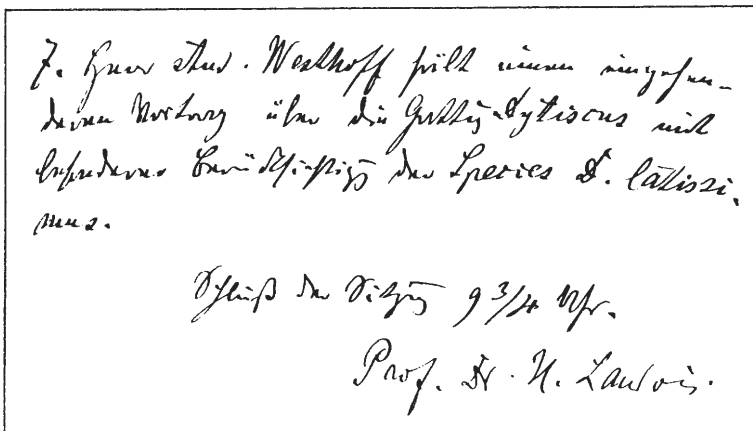 7. Herr Stud. Westhoff hält einen eingehen-
deren Vortrag über die Gattg Dytiscus mit
besonderer Berücksichtigg der Species D. latissi-
mus.
Schluß der Sitzg 9 3/4 Uhr.
Prof. Dr. H. Landois.